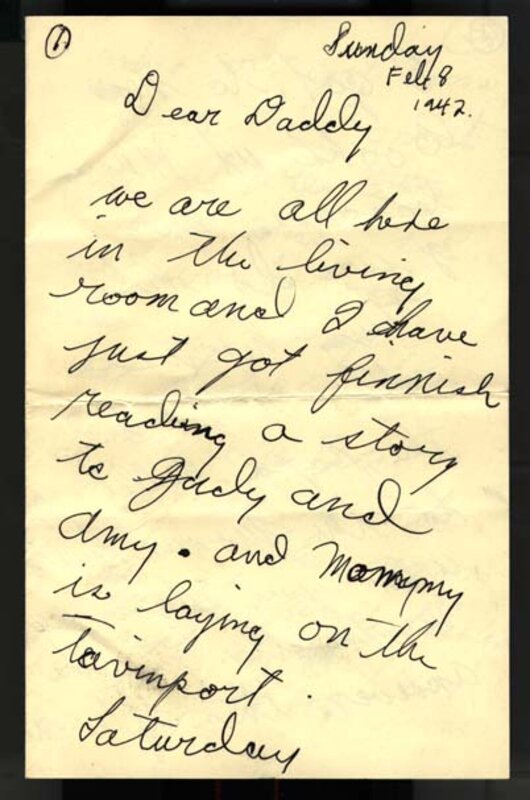 1
Sunday
Feb 8
1942.
Dear Daddy
we are all here
in the living
room and I have
just got finnish
reading a story
to Judy and
Amy. and Mommy
is laying on the
Tavinport.
Saturday